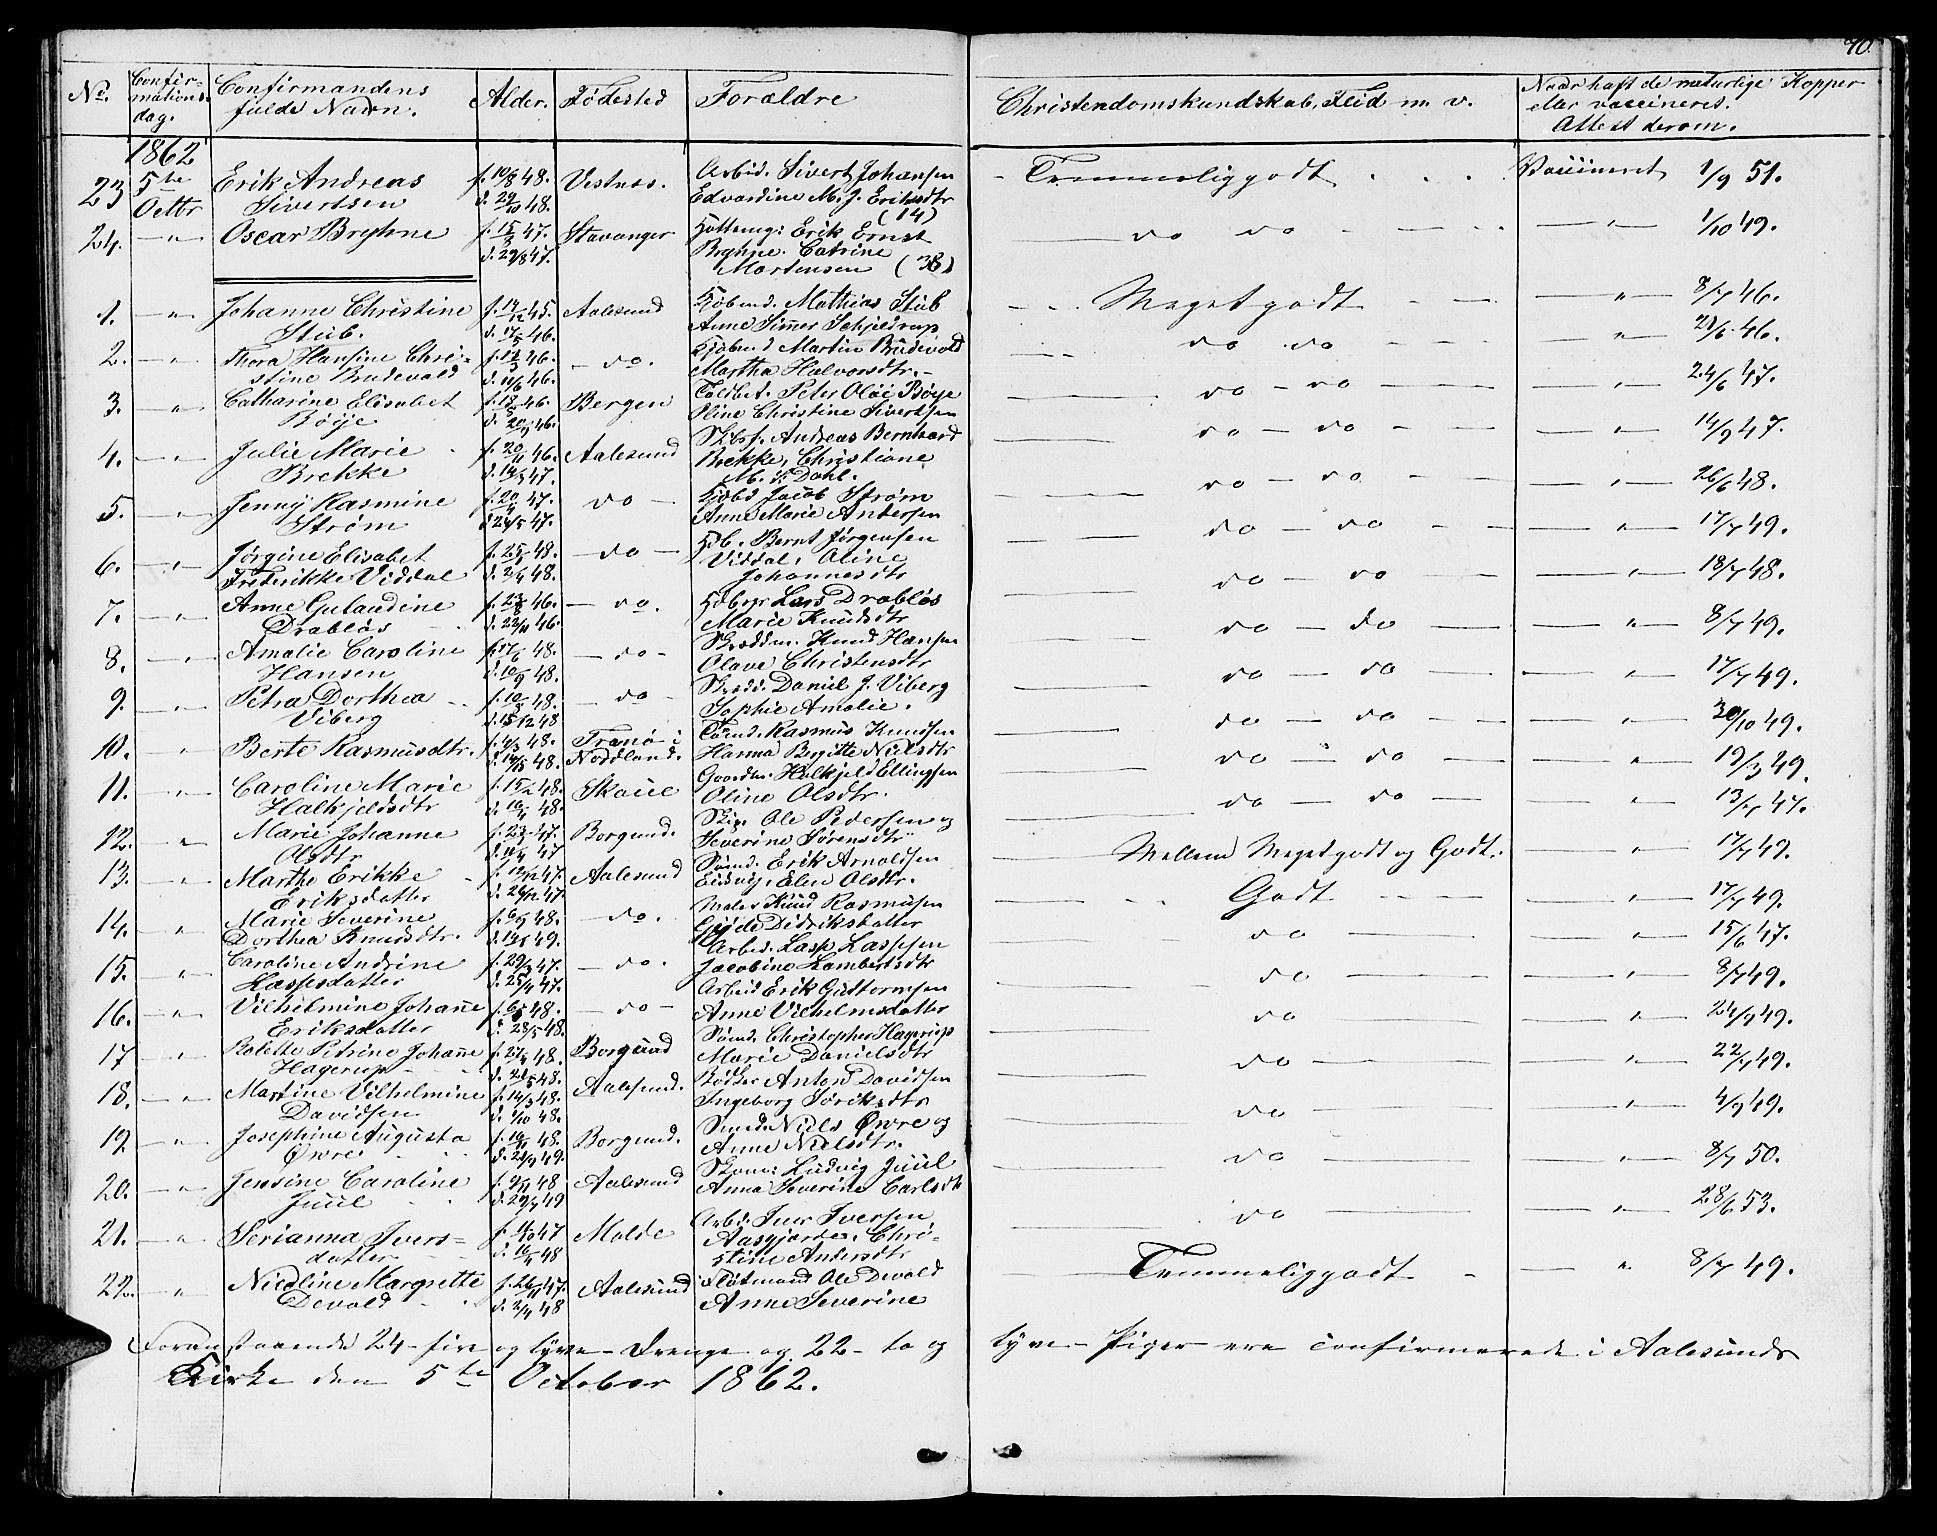 70.
No. Confirmationsdag. Confirmandens fulde Navn. Alder. Fødested Forældre Christendomskundskab, Flid m. v. Naar haft de naturlige Kopper eller vaccineret. Attest derom.
1862
23 5te Octbr Erik Andreas Sivertsen f. 10/8 48. d. 29/10 48. Vestnes. Arbeid. Sivert Johansen Edvardine M. J. Eriksdtr (14) Temmeliggodt Vaccineret 1/9 51.
24. -"- Oscar Bryhne f. 15/3 47. d. 29/8 47. Stavanger Erik Ernst Bryhne. Catrine Martensen (38) do do -"- 1/10 49.
1. -"- Johanne Christine Stub. f. 14/12 45. d. 17/5 46. Aalesund Kjøbmd. Mathias Stub Anne Simer Schjelderup Meget godt -"- 8/7 46.
2. -"- Thora Hansine Christine Brudevold f. 12/3 46. d. 11/6 46. do. Kjøbmd Martin Brudevold Martha Halvorsdtr. do do " 21/6 46.
3. " Catharine Elisabet Bøije f. 18/5 46. d. 20/9 46. Bergen Toldbet. Peter Olai Bøye Oline Christine Sivertsen do - do 24/6 47.
4. -"- Julie Marie Brekke f. 20/11 46. d. 14/3 47. Aalesund Andreas Bernhard Brekke, Christiane M. S. Dahl. do - do 14/9 47.
5. -"- Jenny Rasmine Strøm f. 20/4 47. d. 24/5 47. do Jacob Strøm Anne Marie Andersen do - do -"- 26/6 48.
6. -"- Jørgine Elisabet Frederikke Viddal f. 25/1 48. d. 2/4 48. do Bernt Jørgensen Viddal, Oline Johannesdtr do - do -"- 17/7 49.
7. -"- Anne Gulaudine Drabløs f. 23/8 46. d. 22/11 46. do. Lars Drabløs Marie Knudsdtr do - do -"- 18/7 48.
8. -"- Amalie Caroline Hansen f. 17/6 48. d. 10/9 48. do Skrædderm. Knud Hansen Olave Christensdtr do - do -"- 8/7 49.
9. -"- Petra Dorthea Viberg f. 10/8 48. d. 15/12 48 do Skrædd. Daniel J. Viberg Sophie Amalie. do - do -"- 17/7 49.
10. " Berte Rasmusdtr. f. 4/3 48. d. 14/5 48. Tranø i Nordland. Rasmus Knudsen Hanna Birgitte Nielsdtr do - do -"- 30/10 49.
11. -"- Caroline Marie Halkjeldsdtr f. 15/2 48. d. 16/4 48. Skoue Gaardm. Halkjeld Ellingsen Oline Olsdtr. do - do -"- 19/3 49.
12. " Marie Johanne Olsdtr f. 23/1 47. d. 11/4 47 Borgund. Ole Pedersen og Severine Sørensdtr do - do " 13/7 47.
13. -"- Marthe Erikke Eriksdatter f. 12/12 47. d. 26/12 47. Aalesund Sømd. Erik Arnoldsen Elen Olsdtr. Mellem Megetgodt og Godt. " 17/7 49.
14. -"- Marie Severine Dorthea Knudsdtr. f. 6/5 48. d. 14/5 49. do. Maler Knud Rasmusen Gjøde Didriksdatter Godt -"- 17/7 49.
15. " Caroline Andrine Laspsdatter f. 29/3 47. d. 25/4 47. do. Arbeid. Lasp Laspsen Jacobine Lambertsdtr do -"- 15/6 47.
16. -"- Vilhelmine Johanne Eriksdatter f. 6/5 48. d. 28/5 48. do Arbeid Erik Guttormsen Anne Vilhelmsdatter do " 8/7 49.
17 -"- Rolette Petrine Johanne Hagerup f. 27/4 48. d. 21/5 48. Borgund Sømd. Christopher Hagerup Marie Danielsdtr do -"- 24/7 49.
18. -"- Martine Vilhelmine Davidsen f. 14/3 48. d. 1/10 48. Aalesund. Bødker Anton Davidsen Ingeborg Søriksdtr do " 22/7 49.
19. " Josephine Augusta Øwre f. 10/11 48. d. 21/9 49. Borgund. Smed. Niels Øwre og Anne Nielsdtr. do -"- 4/9 49.
20. -"- Jensine Caroline Juul f. 9/11 48 d. 29/7 49 Aalesund Ludvig Juul Anna Severine Carlsdtr do " 8/7 50.
21. -"- Serianna Iversdatter f. 11/10 47 d. 16/4 48 Molde Arbd. Iver Iversen Aasgjærdes, Christine Andersdtr do -"- 28/6 53.
22. -"- Nicoline Margrette Devold f. 26/11 47. d. 2/4 48 Aalesund Flotmand Ole Devold Anne Severine Temmeliggodt " 8/7 49.
Foranstaaende 24 - fire og tyve - Drenge og 22 - to og tyve - Piger ere confirmerede i Aalesunds
Kirke den 5te October 1862.